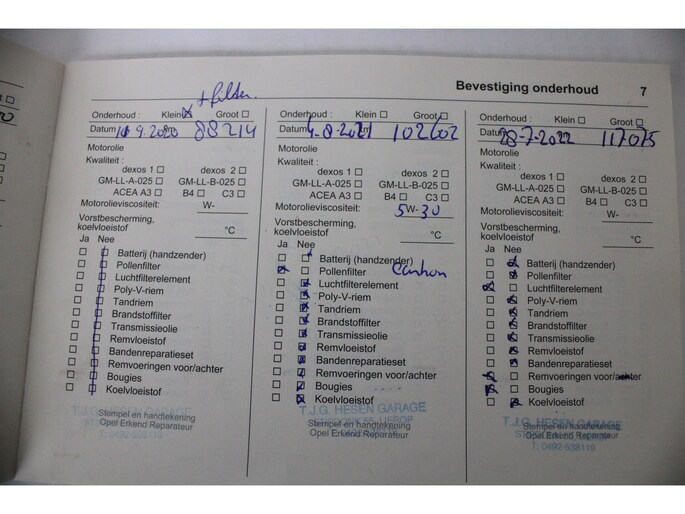 Bevestiging onderhoud 7
+ filter.
Onderhoud : Klein Groot
Datum 10 9.2020 88214
Motorolie
Kwaliteit :
dexos 1 dexos 2
GM-LL-A-025 GM-LL-B-025
ACEA A3 B4 C3
Motorolieviscositeit: W-
Vorstbescherming,
koelvloeistof °C
Ja Nee
Batterij (handzender)
Pollenfilter
Luchtfilterelement
Poly-V-riem
Tandriem
Brandstoffilter
Transmissieolie
Remvloeistof
Bandenreparatieset
Remvoeringen voor/achter
Bougies
Koelvloeistof
T.J.G. HESEN GARAGE
Stempel en handtekening
Opel Erkend Reparateur
T: 0492-538119
Onderhoud : Klein Groot
Datum 4-8-2021 102602
Motorolie
Kwaliteit :
dexos 1 dexos 2
GM-LL-A-025 GM-LL-B-025
ACEA A3 B4 C3
Motorolieviscositeit: 5W-30
Vorstbescherming,
koelvloeistof °C
Ja Nee
Batterij (handzender)
Pollenfilter Carbon
Luchtfilterelement
Poly-V-riem
Tandriem
Brandstoffilter
Transmissieolie
Remvloeistof
Bandenreparatieset
Remvoeringen voor/achter
Bougies
Koelvloeistof
T.J.G. HESEN GARAGE
Stempel en handtekening
Opel Erkend Reparateur
Onderhoud : Klein Groot
Datum 28-7-2022 117075
Motorolie
Kwaliteit :
dexos 1 dexos 2
GM-LL-A-025 GM-LL-B-025
ACEA A3 B4 C3
Motorolieviscositeit: W-
Vorstbescherming,
koelvloeistof °C
Ja Nee
Batterij (handzender)
Pollenfilter
Luchtfilterelement
Poly-V-riem
Tandriem
Brandstoffilter
Transmissieolie
Remvloeistof
Bandenreparatieset
Remvoeringen voor/achter
Bougies
Koelvloeistof
T.J.G. HESEN GARAGE
Stempel en handtekening
Opel Erkend Reparateur
T: 0492-538119